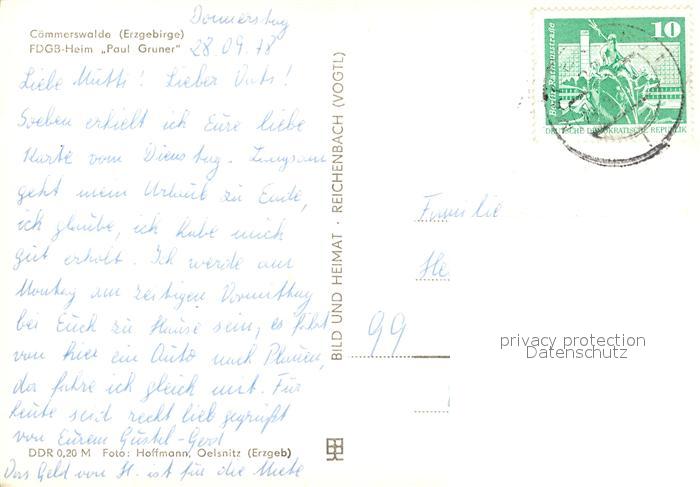 Donnerstag
Cämmerswalde (Erzgebirge)
FDGB-Heim „Paul Gruner" 28.09.78
Liebe Mutti! Lieber Vati!
Soeben erhielt ich Eure liebe
Karte vom Dienstag. Langsam
geht mein Urlaub zu Ende,
ich glaube, ich habe mich
gut erholt. Ich werde am
Montag am zeitigen Vormittag
bei Euch zu Hause sein, es fährt
von hier ein Auto nach Plauen,
da fahre ich gleich mit. Für
heute seid recht lieb gegrüßt
von Eurem Gustel-Gerd
DDR 0,20 M Foto: Hoffmann, Oelsnitz (Erzgeb)
Das Geld von H. ist für die Miete
BILD UND HEIMAT · REICHENBACH (VOGTL)
10
Berlin Rathausstraße
DEUTSCHE DEMOKRATISCHE REPUBLIK
Familie
He
99
privacy protection
Datenschutz